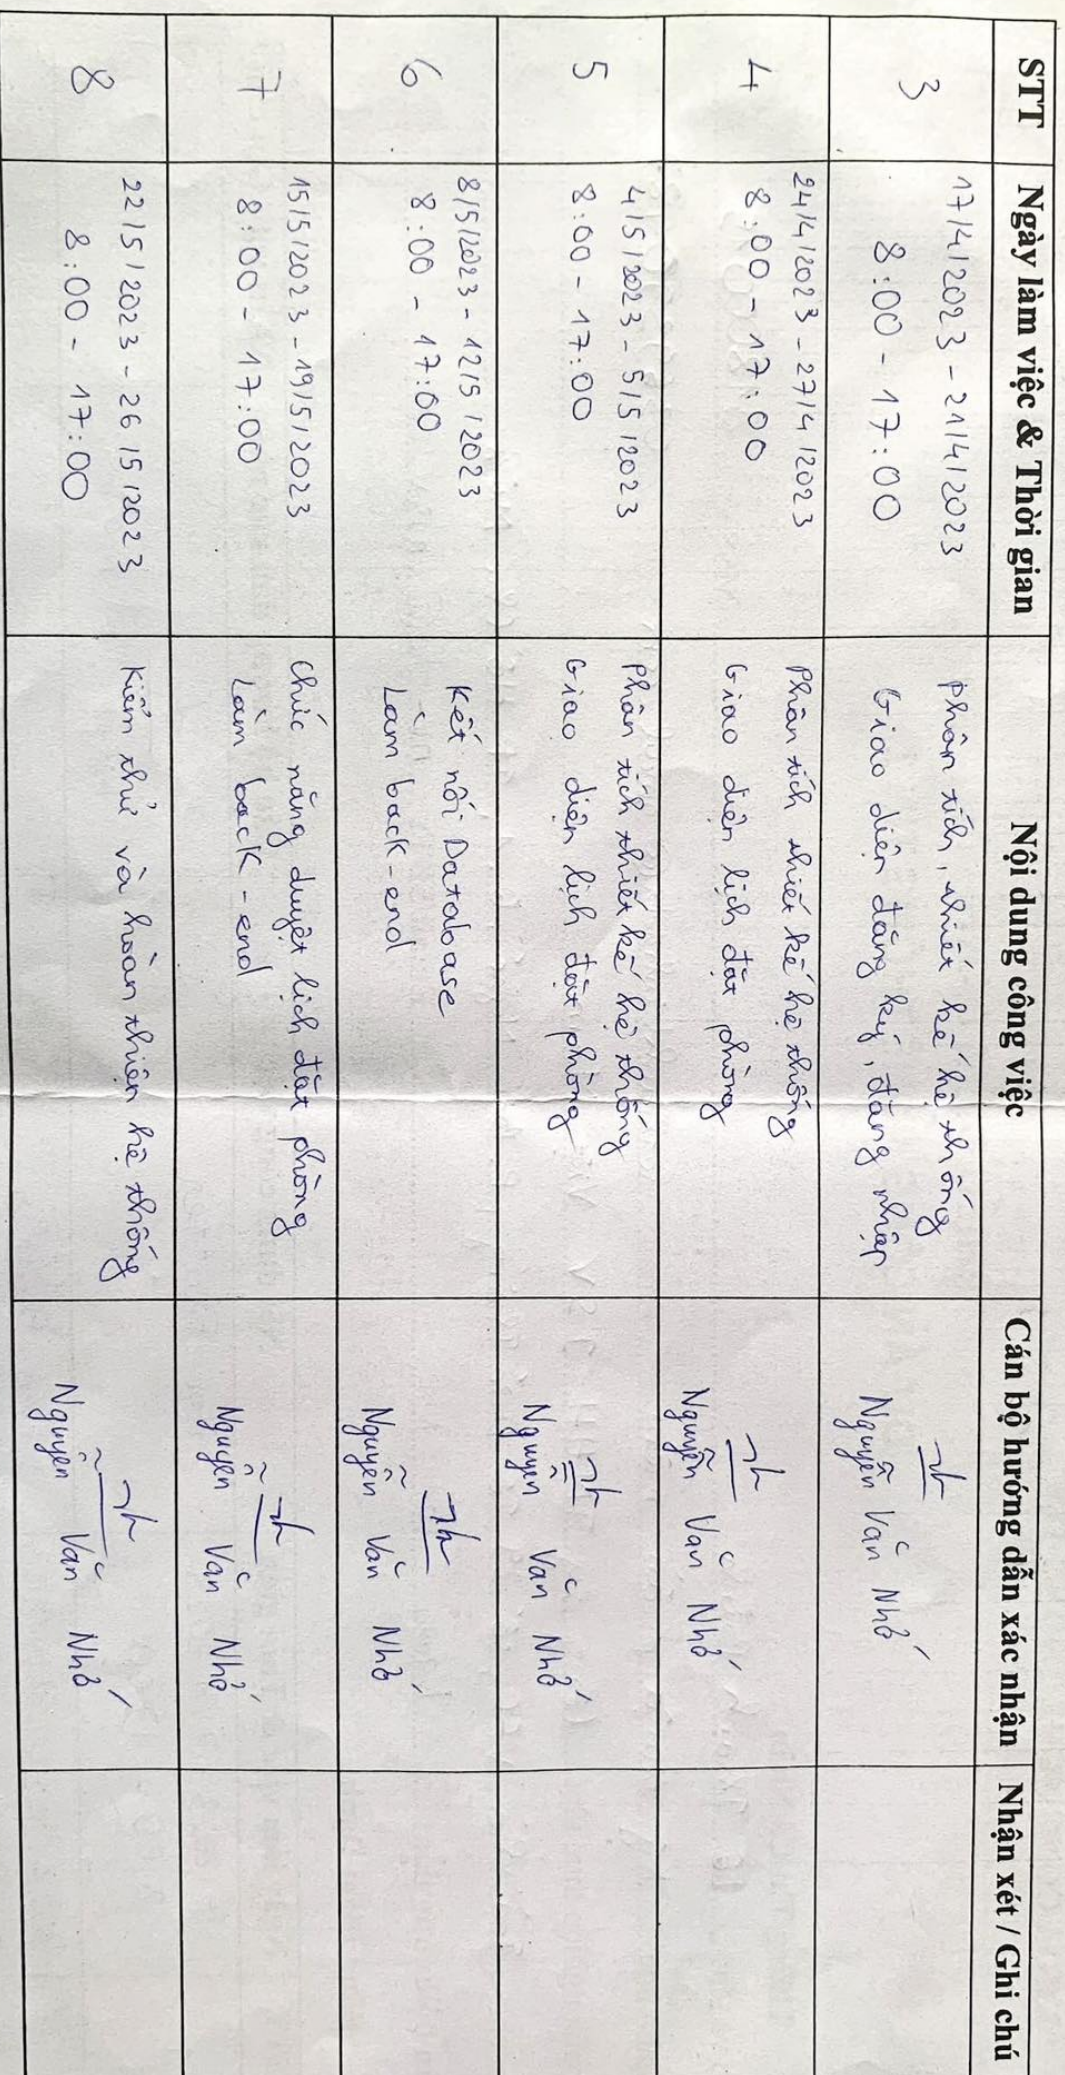 STT Ngày làm việc & Thời gian Nội dung công việc Cán bộ hướng dẫn xác nhận Nhận xét / Ghi chú
3 17/4/2023 - 21/4/2023 Phân tích, thiết kế hệ thống
8:00 - 17:00 Giao diện đăng ký, đăng nhập Nguyễn Văn Nhớ
4 24/4/2023 - 27/4/2023 Phân tích thiết kế hệ thống
8:00 - 17:00 Giao diện lịch đặt phòng Nguyễn Văn Nhớ
5 4/5/2023 - 5/5/2023 Phân tích thiết kế hệ thống
8:00 - 17:00 Giao diện lịch đặt phòng Nguyễn Văn Nhớ
6 8/5/2023 - 12/5/2023 Kết nối Database
8:00 - 17:00 Làm back-end Nguyễn Văn Nhớ
7 15/5/2023 - 19/5/2023 Chức năng duyệt lịch đặt phòng
8:00 - 17:00 Làm back-end Nguyễn Văn Nhớ
8 22/5/2023 - 26/5/2023 Kiểm thử và hoàn thiện hệ thống
8:00 - 17:00 Nguyễn Văn Nhớ